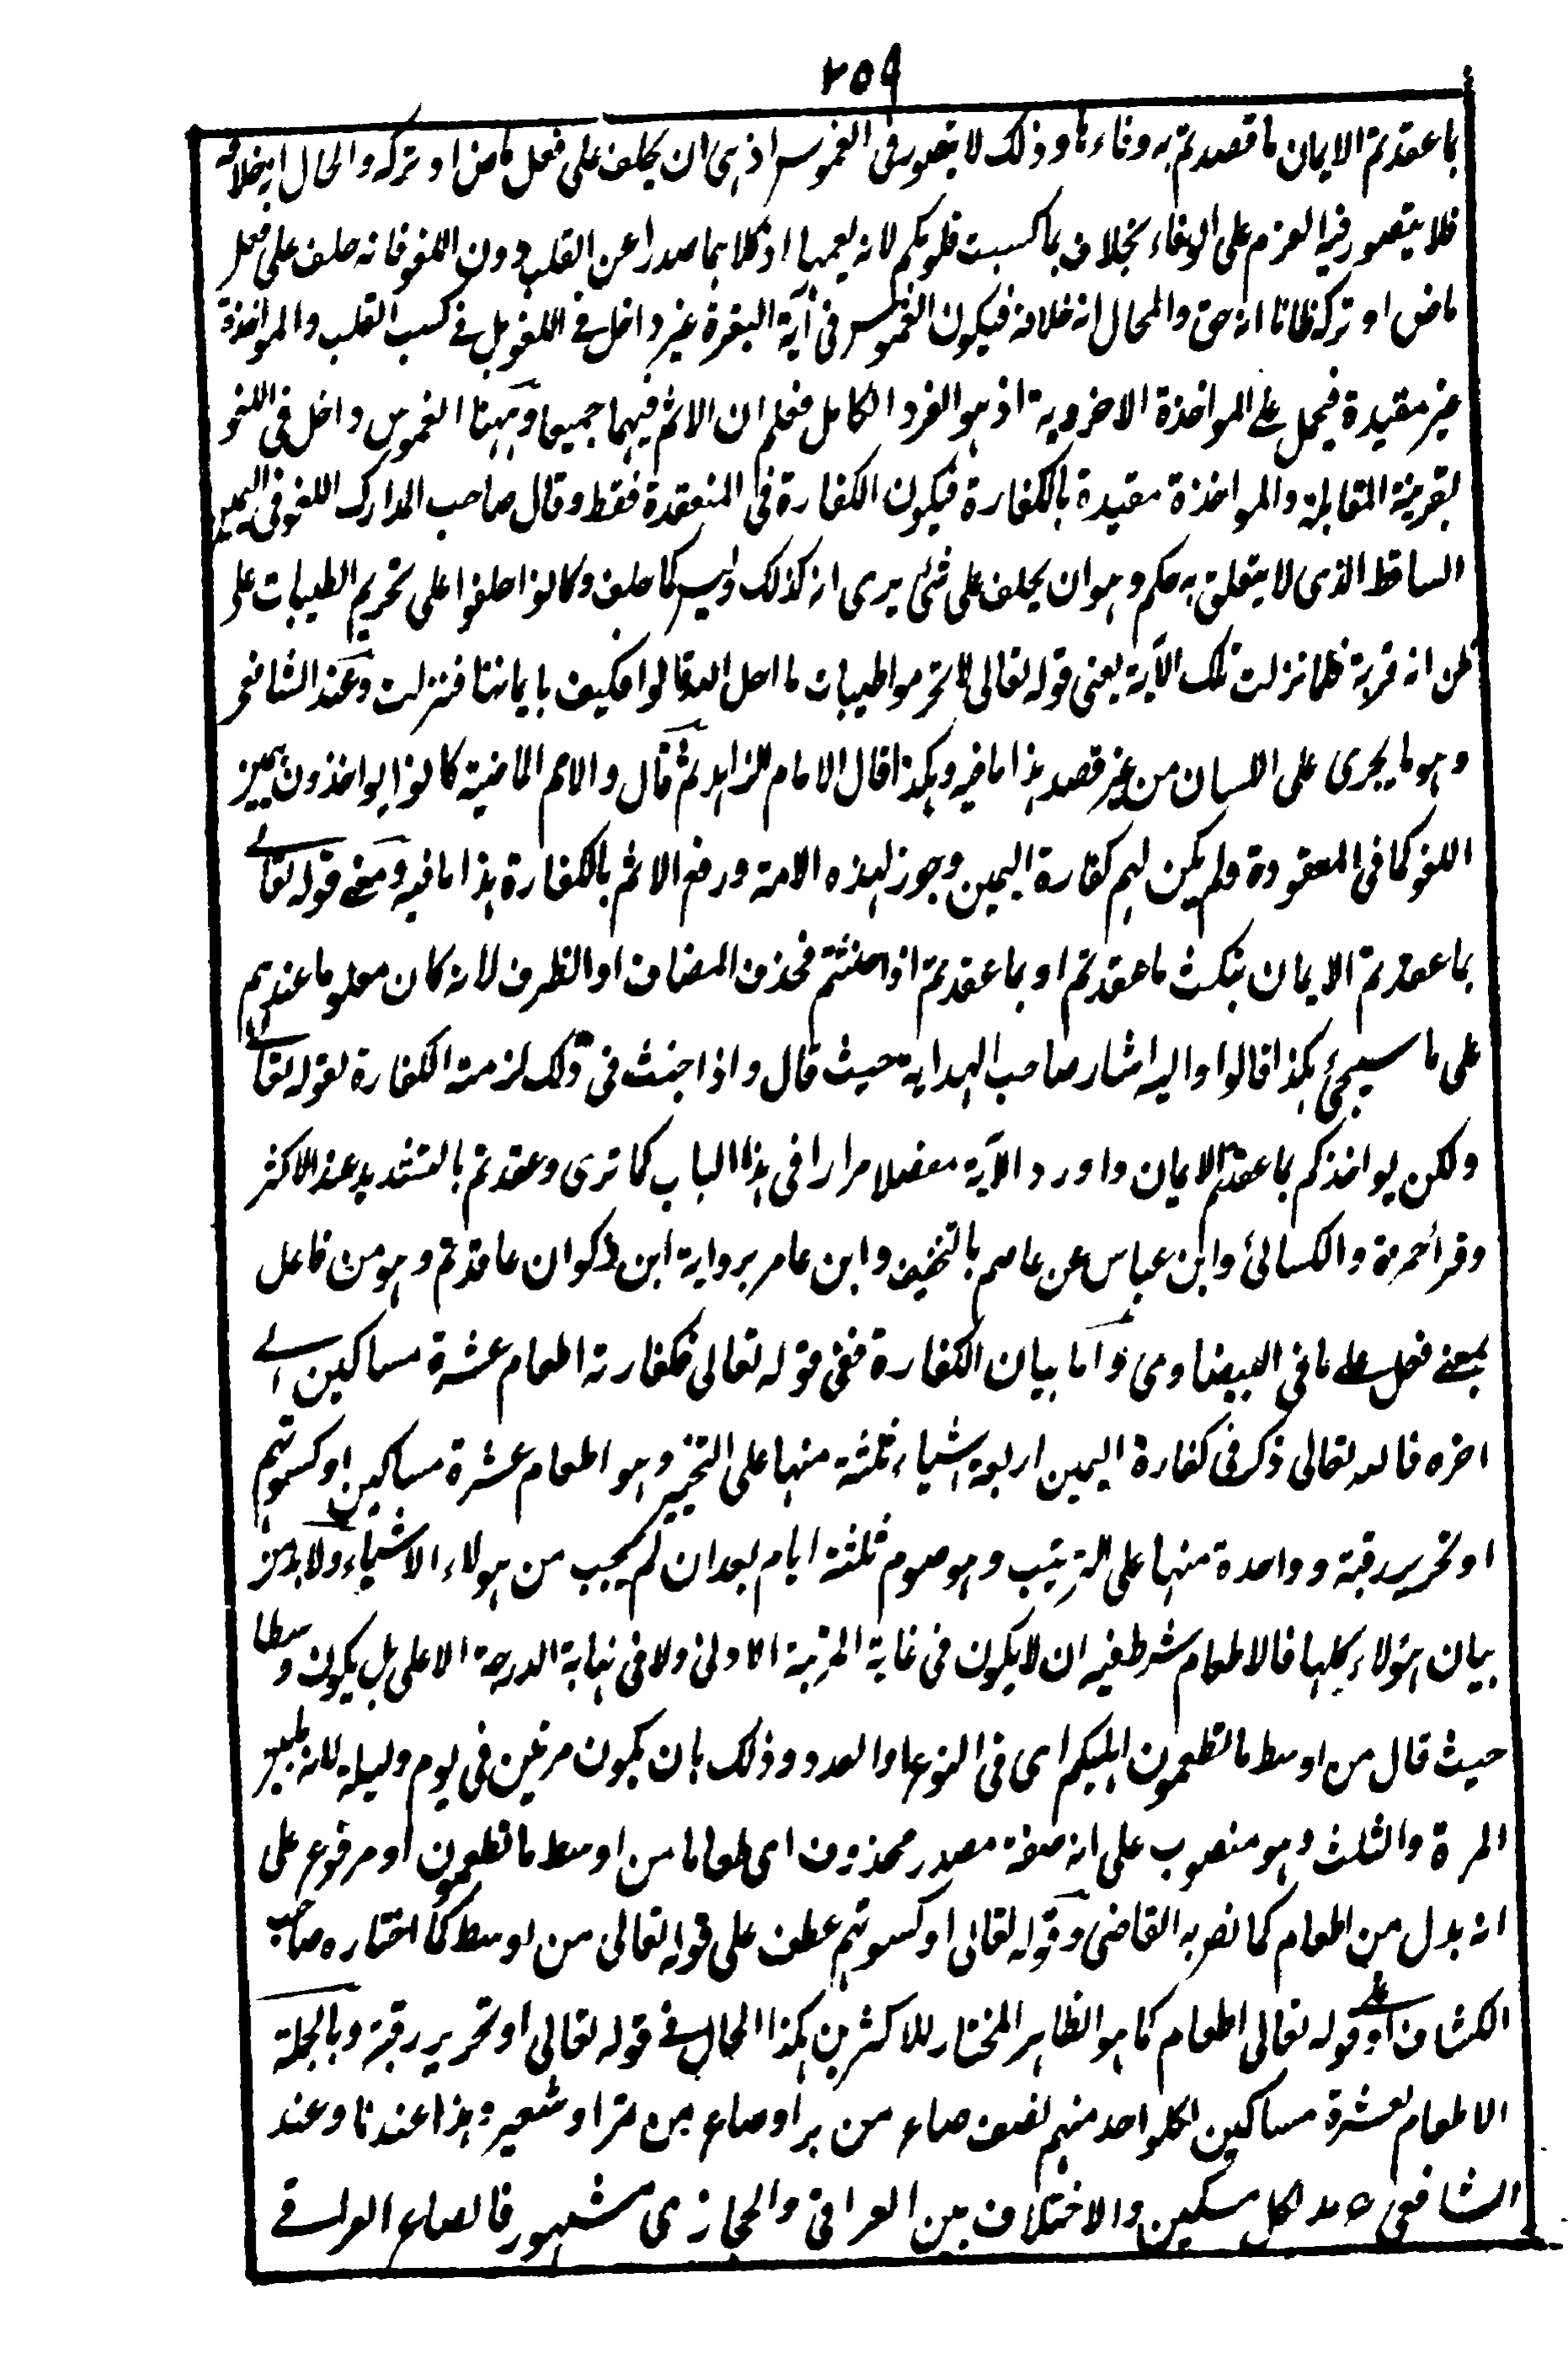 ٢٥٩
بما عقدتم الايمان ما قصدتم به وفاءها وذلك لا يتصور فى الغموس اذ هى ان يحلف على فعل ماض او تركه والحال بخلافه
فلا يتصور فيه العزم على الوفاء بخلاف بما كسبت قلوبكم لانه يعمها اذ كلاهما صدرا عن القلب دون اللغو فانه حلف على فعل
ماض او تركه ظانا انه حق والحال انه خلافه فيكون الغموس فى آية البقرة غير داخل فے اللغو بل فے كسب القلب والمواخذة
غير مقيدة فيحمل علے المواخذة الاخروية اذ هو الفرد الكامل فعلم ان الاثم فيهما جميعا وههنا الغموس داخل فى اللغو
بقرينة المقابلة والمواخذة مقيدة بالكفارة فيكون الكفارة فى المنعقدة فقط وقال صاحب المدارك اللغو فى اليمين
الساقط الذى لا يتعلق به حكم وهو ان يحلف على شئ يرى انه كذلك وليس كما حلف وكانوا حلفوا على تحريم الطيبات على
ظن انه قربة فلما نزلت تلك الآية يعنى قوله تعالى لا تحرموا طيبات ما احل الله قالوا فكيف بايماننا فنزلت وعند الشافعى
وهو ما يجرى على اللسان من غير قصد هذا ما فيه وهكذا قال الامام الزاهد ثم قال والامم الماضية كانوا يواخذون بيمين
اللغو كما فى المعقودة ولم يكن لهم كفارة اليمين وجوز لهذه الامة ورفع الاثم بالكفارة هذا ما فيه ومعنے قوله تعالے
بما عقدتم الايمان بنكث ما عقدتم او بما عقدتم اذا حنثتم فحذف المضاف او الظرف لانه كان معلوما عندهم
على ما سيجئ هكذا قالوا واليه اشار صاحب الهداية حيث قال واذا حنث فى ذلك لزمته الكفارة لقوله تعالے
ولكن يواخذكم بما عقدتم الايمان واورد الآية مفصلا مرارا فى هذا الباب كما ترى وعقدتم بالتشديد عند الاكثر
وقرأ حمزة والكسائى وابن عباس عن عاصم بالتخفيف وابن عامر برواية ابن ذكوان عاقدتم وهو من فاعل
بمعنے فعل علے ما فى البيضاوى واما بيان الكفارة ففى قوله تعالى فكفارته اطعام عشرة مساكين الے
اخره فالله تعالى ذكر فى كفارة اليمين اربعة اشياء ثلثة منها على التخيير وهو اطعام عشرة مساكين او كسوتهم
او تحرير رقبة وواحدة منها على الترتيب وهو صوم ثلثة ايام بعد ان لم يجب من هولاء الاشياء ولا بد من
بيان هؤلاء كلها فالاطعام شرط فيه ان لا يكون فى غاية المرتبة الاولى ولا فى نهاية الدرجة الاعلى بل يكون وسطا
حيث قال من اوسط ما تطعمون اهليكم اى فى النوع او العدد وذلك بان يكون مرتين فى يوم وليلة لانه بين
المرة والثلث وهو منصوب على انه صفة مصدر محذوف اى طعاما من اوسط ما تطعمون او مرفوع على
انه بدل من اطعام كما نص به القاضى وقوله تعالى او كسوتهم عطف على قوله تعالى من اوسط كما اختاره صاحب
الكشاف او على قوله تعالى اطعام كما هو الظاهر المختار للاكثرين هكذا الحال فے قوله تعالى او تحرير رقبة وبالجملة
الاطعام لعشرة مساكين لكل واحد منهم نصف صاع من بر او صاع من تمر او شعير وهذا عندنا وعند
الشافعى مد لكل مسكين والاختلاف بين العراقى والحجازى مشهور فالصاع العراقے